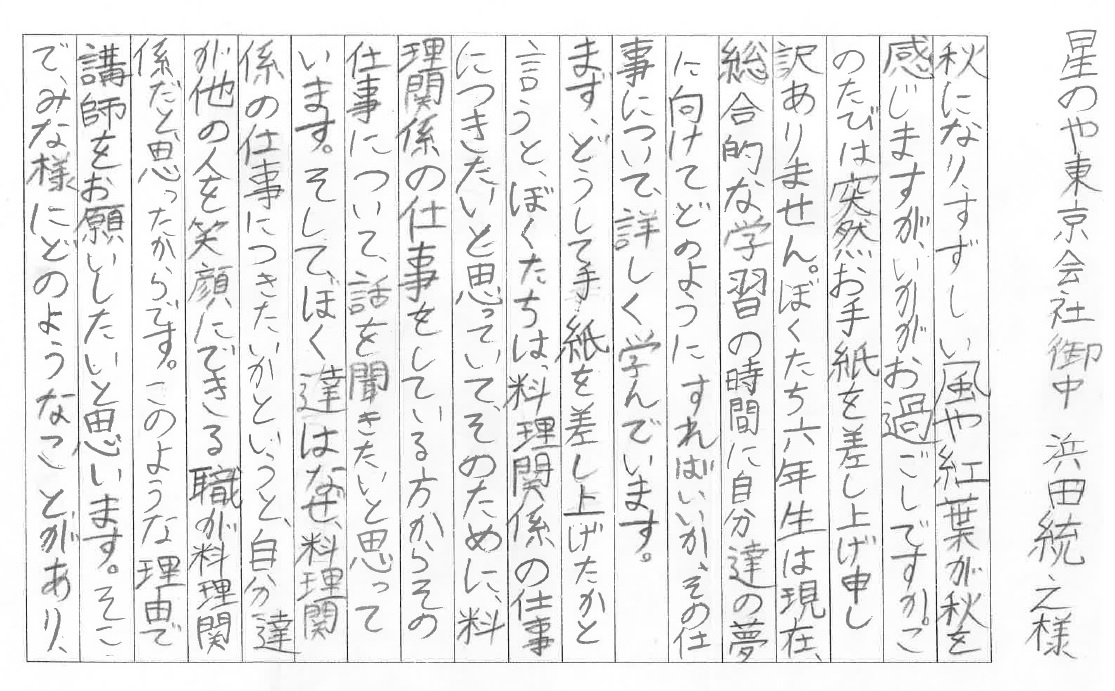 星のや東京会社御中 浜田統之様
秋になり、すずしい風や紅葉が秋を
感じますが、いかがお過ごしですか。こ
のたびは突然お手紙を差し上げ申し
訳ありません。ぼくたち六年生は現在、
総合的な学習の時間に自分達の夢
に向けてどのようにすればいいか、その仕
事について、詳しく学んでいます。
まず、どうして手紙を差し上げたかと
言うと、ぼくたちは、料理関係の仕事
につきたいと思っていて、そのために、料
理関係の仕事をしている方からその
仕事について、話を聞きたいと思って
います。そして、ぼく達はなぜ、料理関
係の仕事につきたいかというと、自分達
が他の人を笑顔にできる職が料理関
係だと、思ったからです。このような理由で
講師をお願いしたいと思います。そこ
で、みな様にどのようなことがあり、